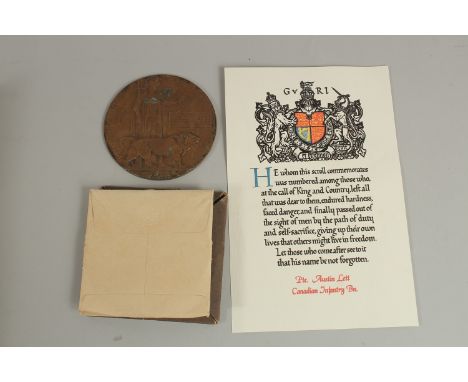 GV RI
HE whom this scroll commemorates
was numbered among those who,
at the call of King and Country, left all
that was dear to them, endured hardness,
faced danger, and finally passed out of
the sight of men by the path of duty
and self-sacrifice, giving up their own
lives that others might live in freedom.
Let those who come after see to it
that his name be not forgotten.
Pte. Austin Lett
Canadian Infantry Bn.